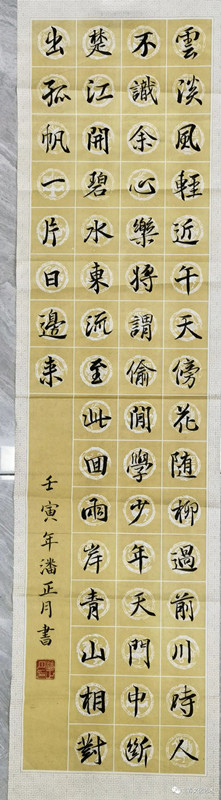 雲淡風輕近午天傍花随柳過前川時人
不識余心樂將謂偷閒學少年天門中断
楚江開碧水東流至此回兩岸青山相對
出孤帆一片日邊来
壬寅年潘正月書